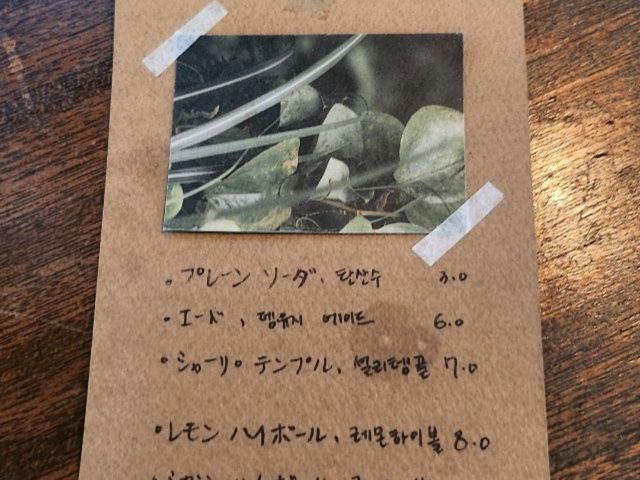 . プレーン ソーダ, 탄산수 3.0
・エード, 뎅유지 에이드 6.0
・シャーリー テンプル, 셜리템플 7.0
・レモン ハイボール, 레몬하이볼 8.0